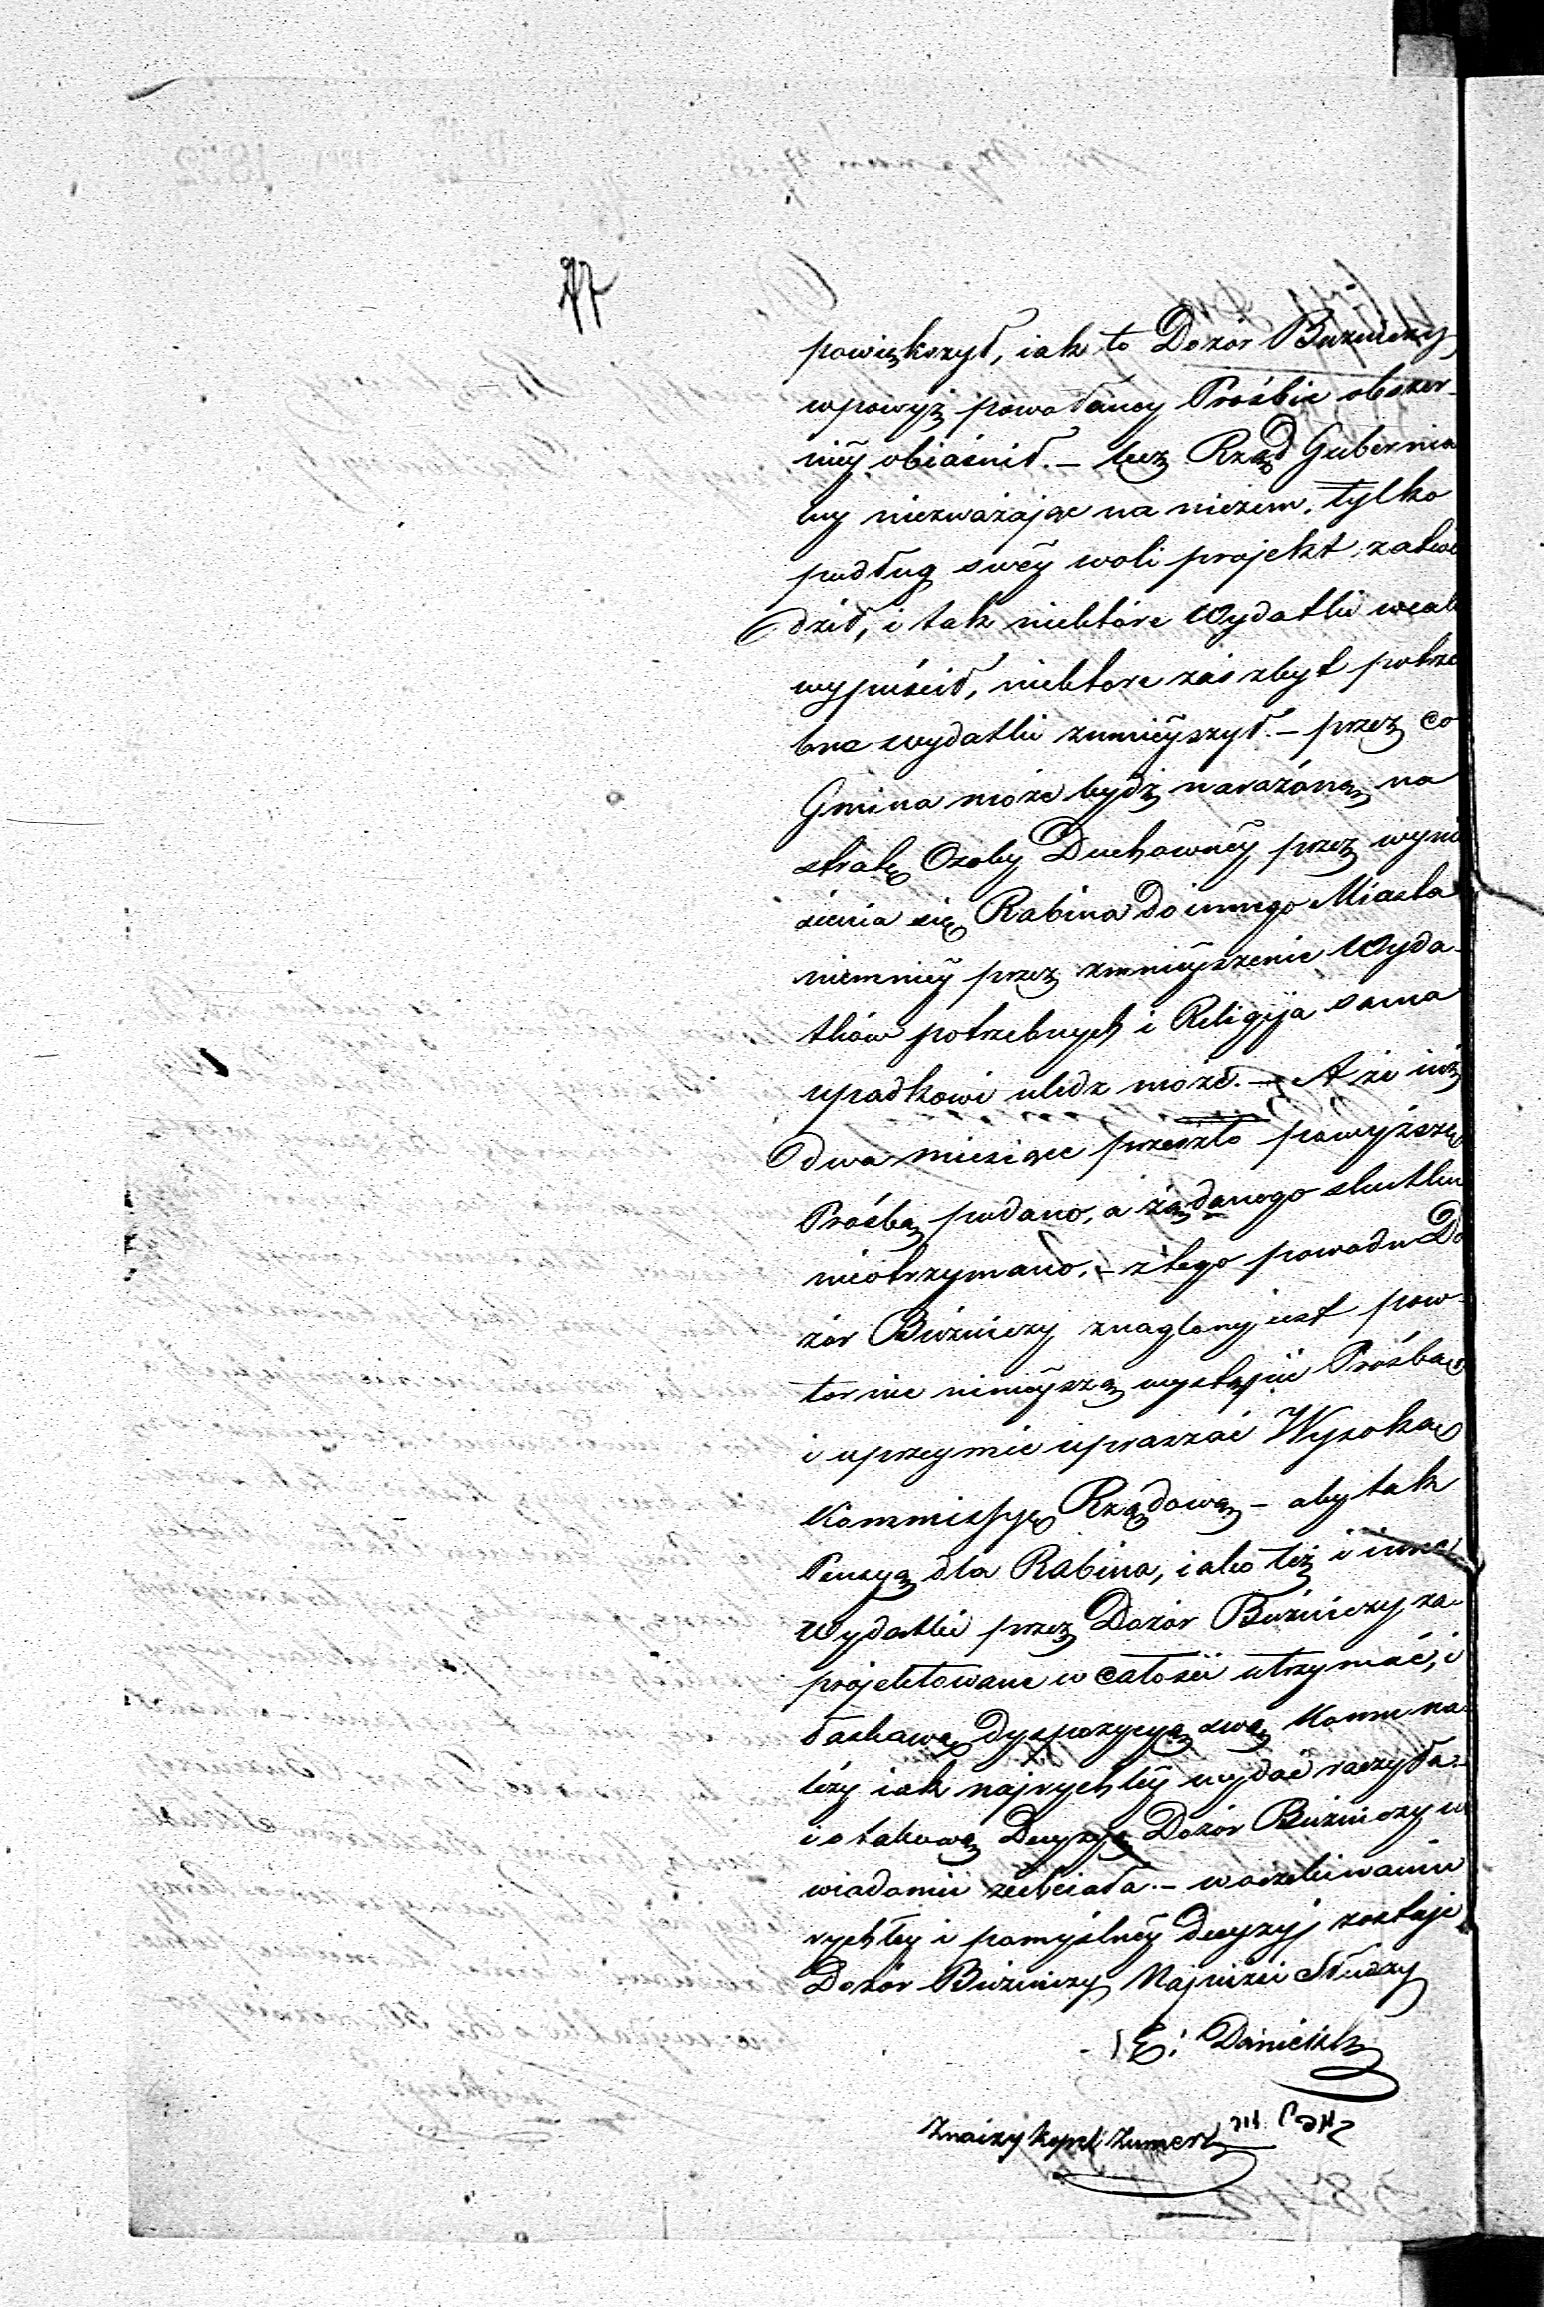 47
powiększył, iak to Dozór Buzniczy
wpowyż powołaney Prośbie obszer-
niéy obiaśnił. – lecz Rząd Gubernia
lny niezważając na niczem, tylko
podług swéy woli projekt zatwi
dził, i tak niektóre Wydatki wcale
wypuścił, niektore zaś zbyt potrze
bne wydatki zmniéyszył. – przez co
Gmina może bydź narażóną na
stratę Osoby Duchownéy przez wyni
sienia się Rabina do innego Miasta
niemniéy przez zmniéyszenie Wyda-
tków potrzebnych i Religija sama
upadkowi uledz może. – A że iuż
dwa miesiące przeszło powyższą
Prośbą podano, a żądanego skutku
nieotrzymano. – z tego powodu Do
zór Bużniczy znaglony iest pow-
tornie ninieyszą wystąpić Prośbą
i uprzeymie upraszać Wysoką
Kommissyę Rządową – aby tak
Pensyą dla Rabina, iako też i inne
Wydatki przez Dozór Bużniczy za-
projektowane w całości utrzymać, i
łaskawę dyspozycyą swą komu na-
leży iak najrychléy wydać raczyła. –
i o takową Decyzyą Dozór Bużniczy u
wiadomić zechciała. – w oczekiwaniu
rychłey i pomyślnéy decyzyj zostaje
Dozór Bużniczy Najniżsi Słudzy
E: Daniel
Kopel Zumer